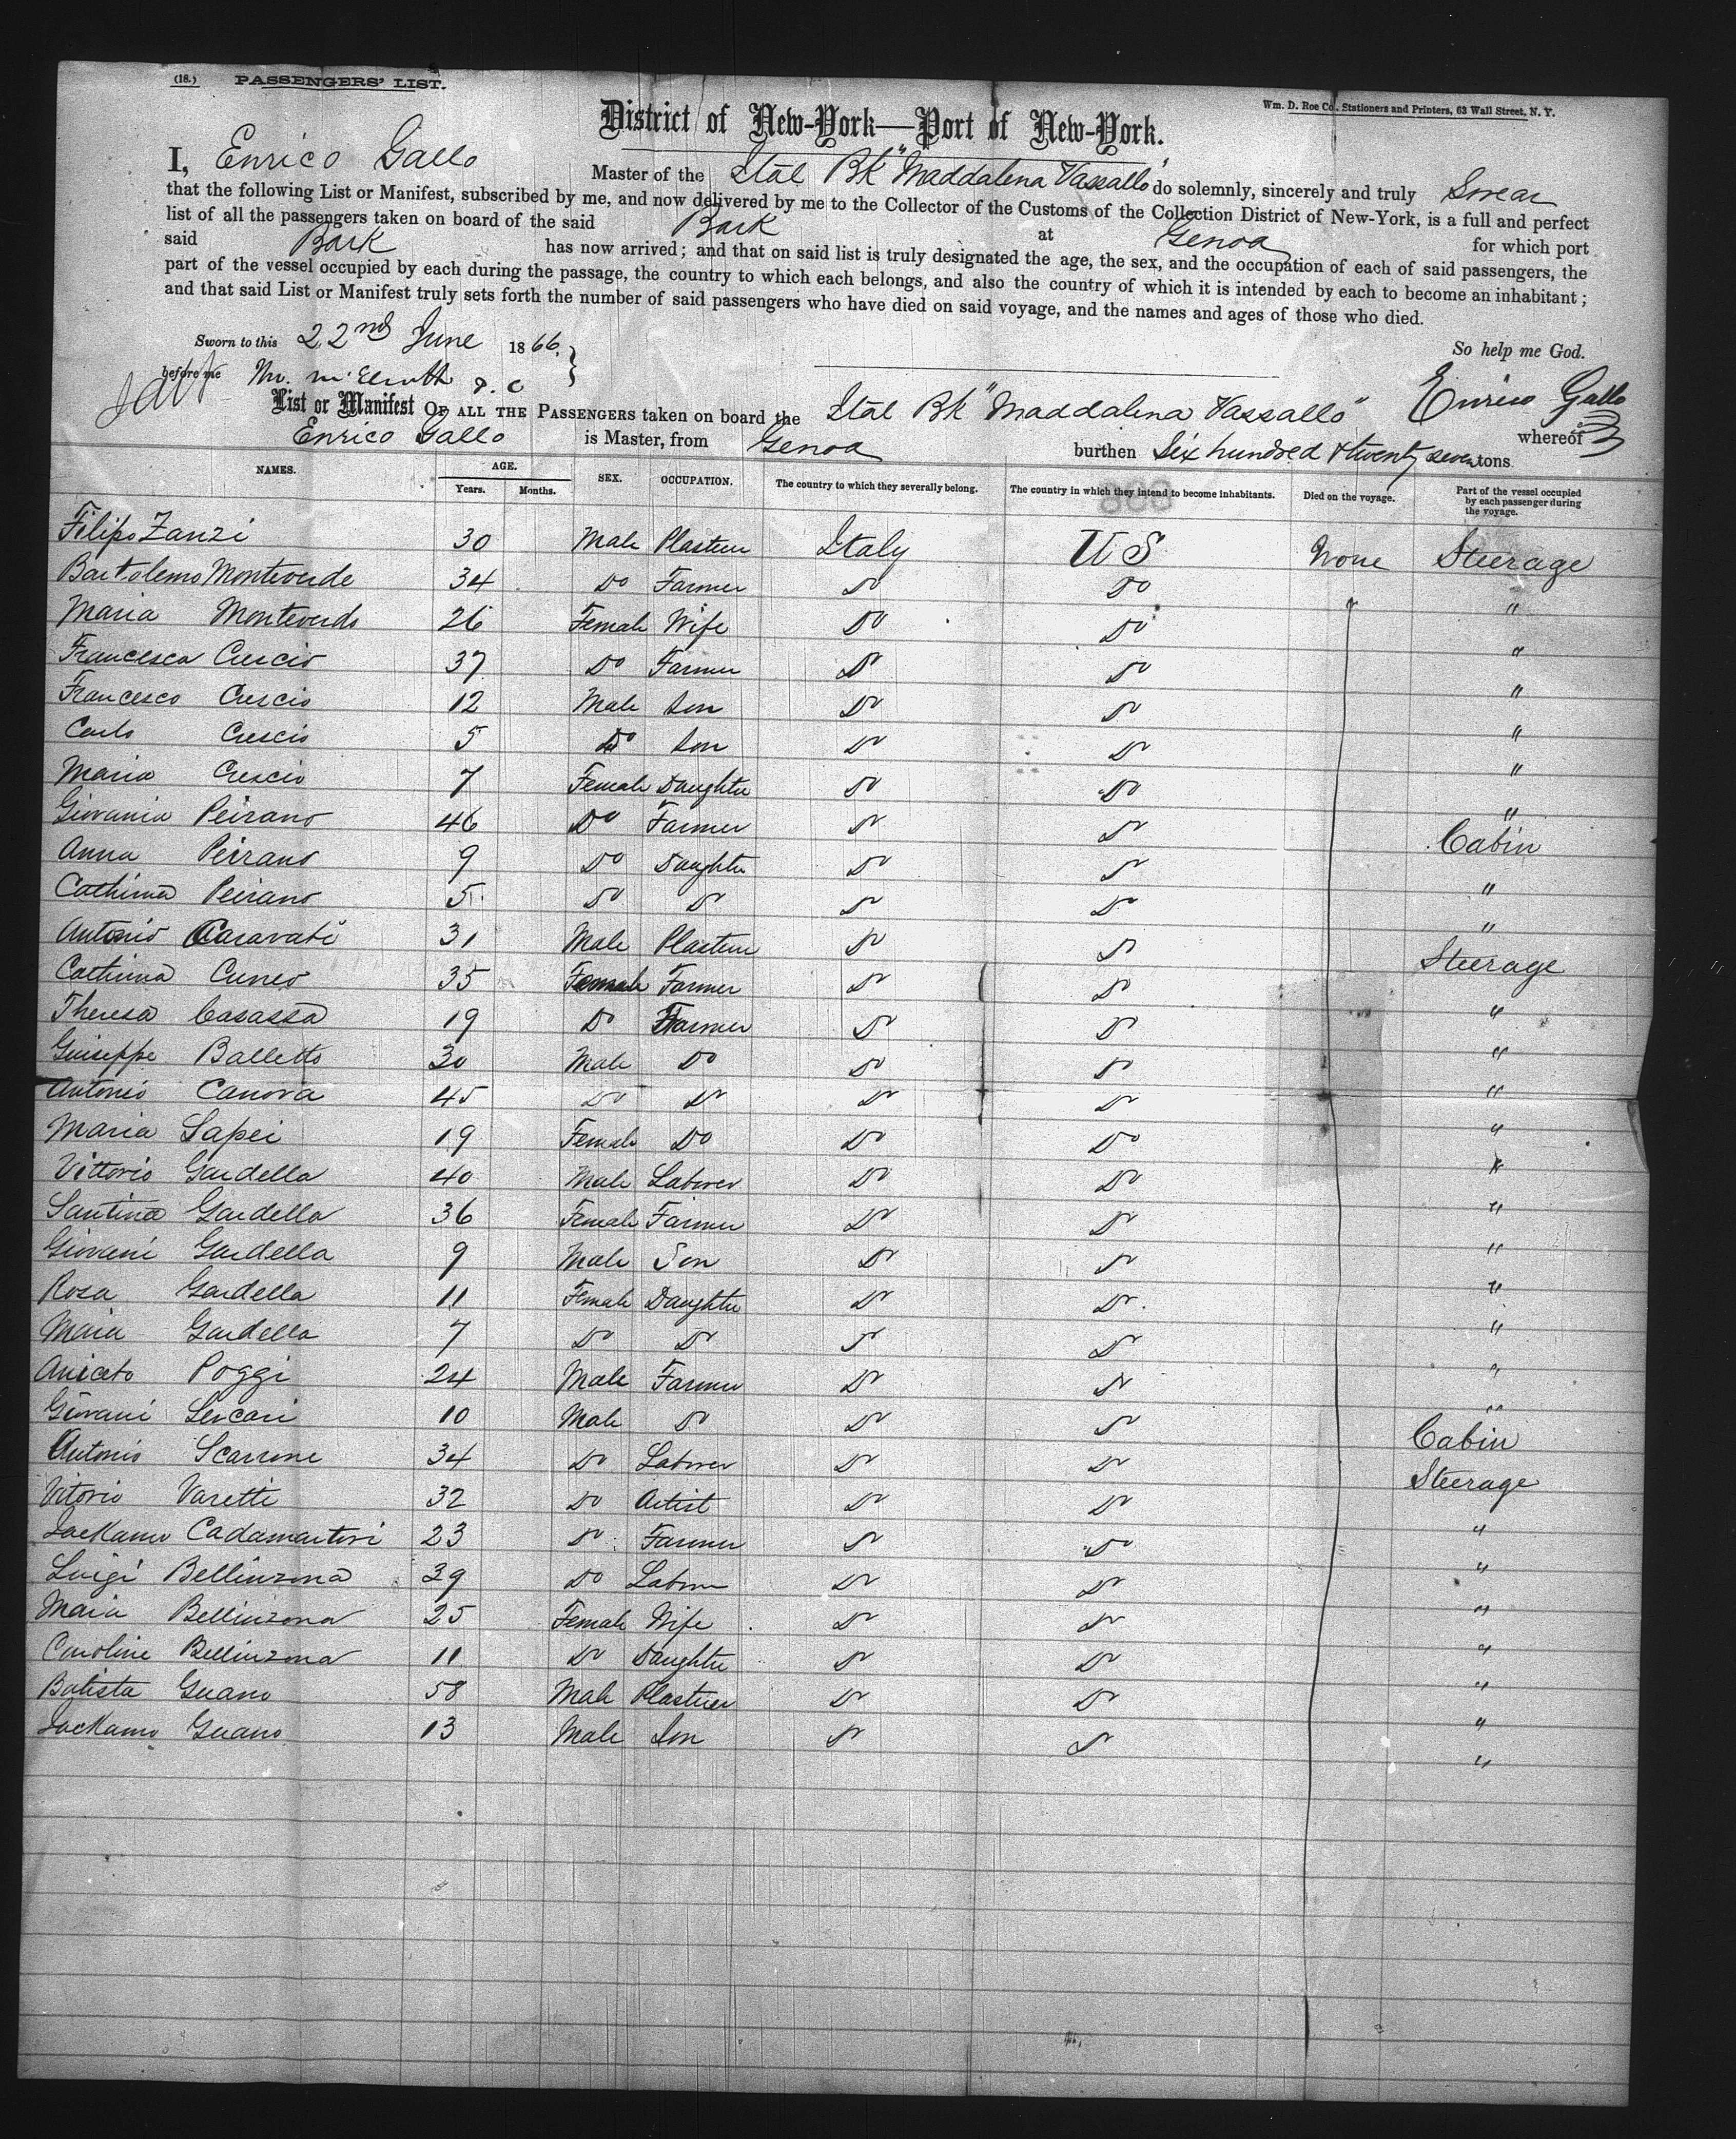 (18.) PASSENGERS' LIST.
Wm. D. Roe Co. Stationers and Printers, 63 Wall Street, N. Y.
District of New-York—Port of New-York.
I, Enrico Gallo Master of the Ital Bk "Maddalena Vassallo" do solemnly, sincerely and truly Swear
that the following List or Manifest, subscribed by me, and now delivered by me to the Collector of the Customs of the Collection District of New-York, is a full and perfect
list of all the passengers taken on board of the said Bark at Genoa for which port
said Bark has now arrived; and that on said list is truly designated the age, the sex, and the occupation of each of said passengers, the
part of the vessel occupied by each during the passage, the country to which each belongs, and also the country of which it is intended by each to become an inhabitant;
and that said List or Manifest truly sets forth the number of said passengers who have died on said voyage, and the names and ages of those who died.
Sworn to this 22nd June 1866. So help me God.
before me Enrico Gallo
List or Manifest OF ALL THE PASSENGERS taken on board the Ital Bk "Maddalena Vassallo" whereof
Enrico Gallo is Master, from Genoa burthen Six hundred & twenty seven tons
NAMES. AGE. Years. Months. SEX. OCCUPATION. The country to which they severally belong. The country in which they intend to become inhabitants. Died on the voyage. Part of the vessel occupied by each passenger during the voyage.
Filipo Zanzi 30 Male Plasterer Italy U S None Steerage
Bartolemo Monteverde 34 Do Farmer Do Do "
Maria Monteverdo 26 Female Wife Do Do "
Francesca Crescio 37 Do Farmer Do Do "
Francesco Crescio 12 Male Son Do Do "
Carlo Crescio 5 Do Son Do Do "
Maria Crescio 7 Female Daughter Do Do "
Giovania Peirano 46 Do Farmer Do Do Cabin
Anna Peirano 9 Do Daughter Do Do "
Cathirina Peirano 5 Do Do Do Do "
Antonio Caravati 31 Male Plasterer Do Do Steerage
Cathirina Cuneo 35 Female Farmer Do Do "
Theresa Casassa 19 Do Farmer Do Do "
Guiseppe Balletto 30 Male Do Do Do "
Antonio Canova 45 Do Do Do Do "
Maria Sapei 19 Female Do Do Do "
Vittorio Gardella 40 Male Laborer Do Do "
Santina Gardella 36 Female Farmer Do Do "
Giovani Gardella 9 Male Son Do Do "
Rosa Gardella 11 Female Daughter Do Do "
Maria Gardella 7 Do Do Do Do "
Aniceto Poggi 24 Male Farmer Do Do "
Giovani Lercari 10 Male Do Do Do Cabin
Antonio Scarrone 34 Do Laborer Do Do Steerage
Vitorio Varetti 32 Do Artist Do Do "
Jackamo Cadamartori 23 Do Farmer Do Do "
Luigi Bellinzona 39 Do Laborer Do Do "
Maria Bellinzona 25 Female Wife Do Do "
Caroline Bellinzona 11 Do Daughter Do Do "
Batista Guano 58 Male Plasterer Do Do "
Jackamo Guano 13 Male Son Do Do "